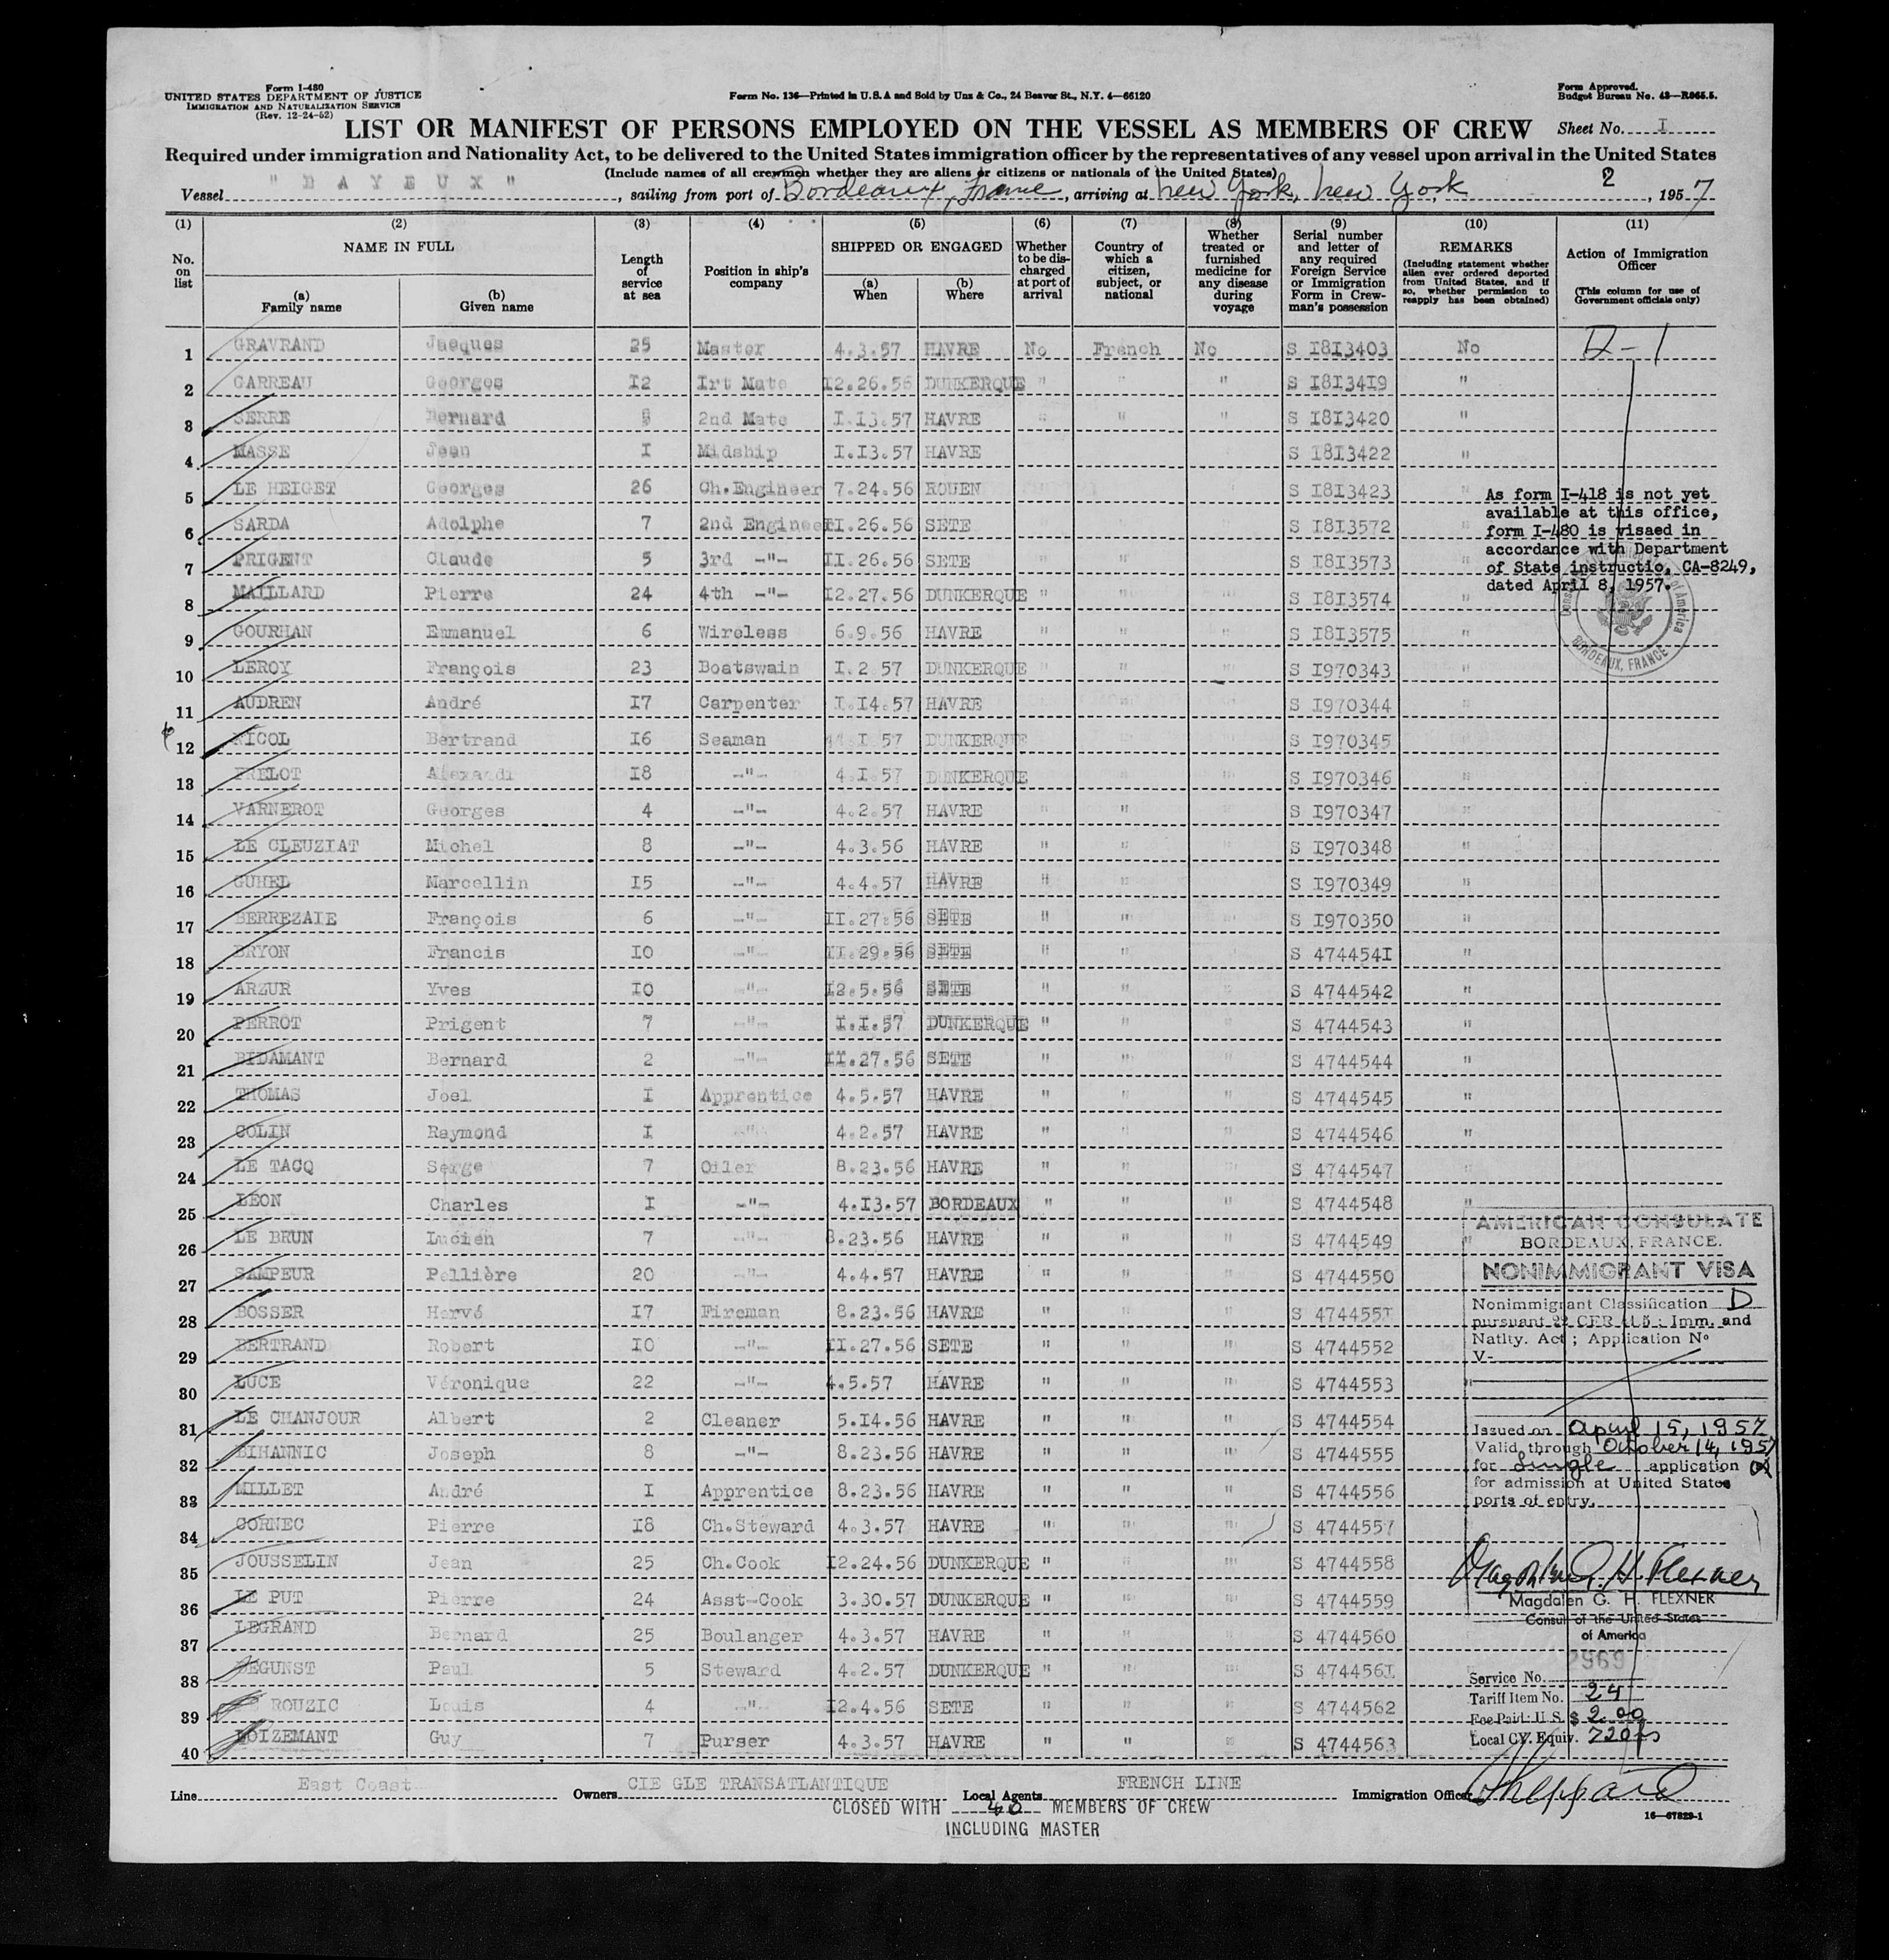 Form I-480
UNITED STATES DEPARTMENT OF JUSTICE
IMMIGRATION AND NATURALIZATION SERVICE
(Rev. 12-24-52)
Form No. 136—Printed in U.S.A and Sold by Unz & Co., 24 Beaver St., N.Y. 4—66120
Form Approved.
Budget Bureau No. 43—R065.5.
LIST OR MANIFEST OF PERSONS EMPLOYED ON THE VESSEL AS MEMBERS OF CREW
Sheet No. I
Required under immigration and Nationality Act, to be delivered to the United States immigration officer by the representatives of any vessel upon arrival in the United States
(Include names of all crewmen whether they are aliens or citizens or nationals of the United States)
Vessel "BAYEUX", sailing from port of Bordeaux, France, arriving at New York, New York 2, 1957
(1) (2) (3) (4) (5) (6) (7) (8) (9) (10) (11)
No. on list
NAME IN FULL
(a) Family name
(b) Given name
Length of service at sea
Position in ship's company
SHIPPED OR ENGAGED
(a) When
(b) Where
Whether to be discharged at port of arrival
Country of which a citizen, subject, or national
Whether treated or furnished medicine for any disease during voyage
Serial number and letter of any required Foreign Service or Immigration Form in Crewman's possession
REMARKS
(Including statement whether alien ever ordered deported from United States, and if so, whether permission to reapply has been obtained)
Action of Immigration Officer
(This column for use of Government officials only)
1 GRAVRAND Jacques 25 Master 4.3.57 HAVRE No French No S I8I3403 No D-1
2 CARREAU Georges I2 Irt Mate I2.26.56 DUNKERQUE " " " S I8I34I9 "
3 SERRE Bernard 2nd Mate I.I3.57 HAVRE " " " S I8I3420 "
4 MASSE Jean I Midship I.I3.57 HAVRE S I8I3422 "
5 LE HEIGET Georges 26 Ch.Engineer 7.24.56 ROUEN S I8I3423 "
6 SARDA Adolphe 7 2nd Engineer II.26.56 SETE S I8I3572
7 PRIGENT Claude 5 3rd -"- II.26.56 SETE " " " S I8I3573 "
8 MAILLARD Pierre 24 4th -"- I2.27.56 DUNKERQUE " " " S I8I3574 "
9 GOURHAN Emmanuel 6 Wireless 6.9.56 HAVRE " " " S I8I3575 "
10 LEROY François 23 Boatswain I.2 57 DUNKERQUE " " " S I970343 "
11 AUDREN André I7 Carpenter I.I4.57 HAVRE S I970344 "
12 NICOL Bertrand I6 Seaman I 57 DUNKERQUE S I970345 "
13 PRELOT I8 -"- 4.I.57 DUNKERQUE " S I970346 "
14 VARNEROT Georges 4 -"- 4.2.57 HAVRE " " " S I970347 "
15 LE CLEUZIAT Michel 8 -"- 4.3.56 HAVRE " " " S I970348 "
16 GUHEL Marcellin I5 -"- 4.4.57 HAVRE " " " S I970349 "
17 BERREZAIE François 6 -"- II.27.56 SETE " " " S I970350 "
18 BRYON Francis IO -"- II.29.56 SETE " " " S 474454I "
19 ARZUR Yves IO -"- I2.5.56 SETE " " " S 4744542 "
20 PERROT Prigent 7 -"- I.I.57 DUNKERQUE " " " S 4744543 "
21 BIDAMANT Bernard 2 -"- II.27.56 SETE " " " S 4744544 "
22 THOMAS Joel I Apprentice 4.5.57 HAVRE " " " S 4744545 "
23 COLIN Raymond I -"- 4.2.57 HAVRE " " " S 4744546 "
24 LE TACQ Serge 7 Oiler 8.23.56 HAVRE " " " S 4744547 "
25 LEON Charles I -"- 4.I3.57 BORDEAUX " " " S 4744548 "
26 LE BRUN Lucien 7 -"- 8.23.56 HAVRE " " " S 4744549 "
27 SAMPEUR Pellière 20 -"- 4.4.57 HAVRE " " " S 4744550
28 BOSSER Hervé I7 Fireman 8.23.56 HAVRE " " " S 474455I
29 BERTRAND Robert IO -"- II.27.56 SETE " " " S 4744552
30 LUCE Véronique 22 -"- 4.5.57 HAVRE " " " S 4744553 "
31 LE CHANJOUR Albert 2 Cleaner 5.I4.56 HAVRE " " " S 4744554
32 BIHANNIC Joseph 8 -"- 8.23.56 HAVRE " " " S 4744555
33 MILLET André I Apprentice 8.23.56 HAVRE " " " S 4744556
34 CORNEC Pierre I8 Ch.Steward 4.3.57 HAVRE " " " S 4744557
35 JOUSSELIN Jean 25 Ch.Cook I2.24.56 DUNKERQUE " " " S 4744558
36 LE PUT Pierre 24 Asst-Cook 3.30.57 DUNKERQUE " " " S 4744559
37 LEGRAND Bernard 25 Boulanger 4.3.57 HAVRE " " " S 4744560
38 DEGUNST Paul 5 Steward 4.2.57 DUNKERQUE " " " S 474456I
39 ROUZIC Louis 4 -"- I2.4.56 SETE " " " S 4744562
40 LOIZEMANT Guy 7 Purser 4.3.57 HAVRE " " " S 4744563
As form I-418 is not yet
available at this office,
form I-480 is visaed in
accordance with Department
of State instructio, CA-8249,
dated April 8, 1957.
of America
BORDEAUX, FRANCE
AMERICAN CONSULATE
BORDEAUX, FRANCE.
NONIMMIGRANT VISA
Nonimmigrant Classification D
pursuant 22 CFR 41.5; Imm. and
Natlty. Act; Application No
V-
Issued on April 15, 1957
Valid through October 14, 1957
for Single application
for admission at United States
ports of entry.
Magdalen G. H. Flexner
Magdalen G. H. FLEXNER
Consul of the United States
of America
Service No. 2969
Tariff Item No. 24
Fee Paid: U.S. $ 2.00
Local CY. Equiv. 720 frs
Line East Coast Owners CIE GLE TRANSATLANTIQUE Local Agents FRENCH LINE Immigration Officer Sheppard
CLOSED WITH 40 MEMBERS OF CREW
INCLUDING MASTER
16—67829-1